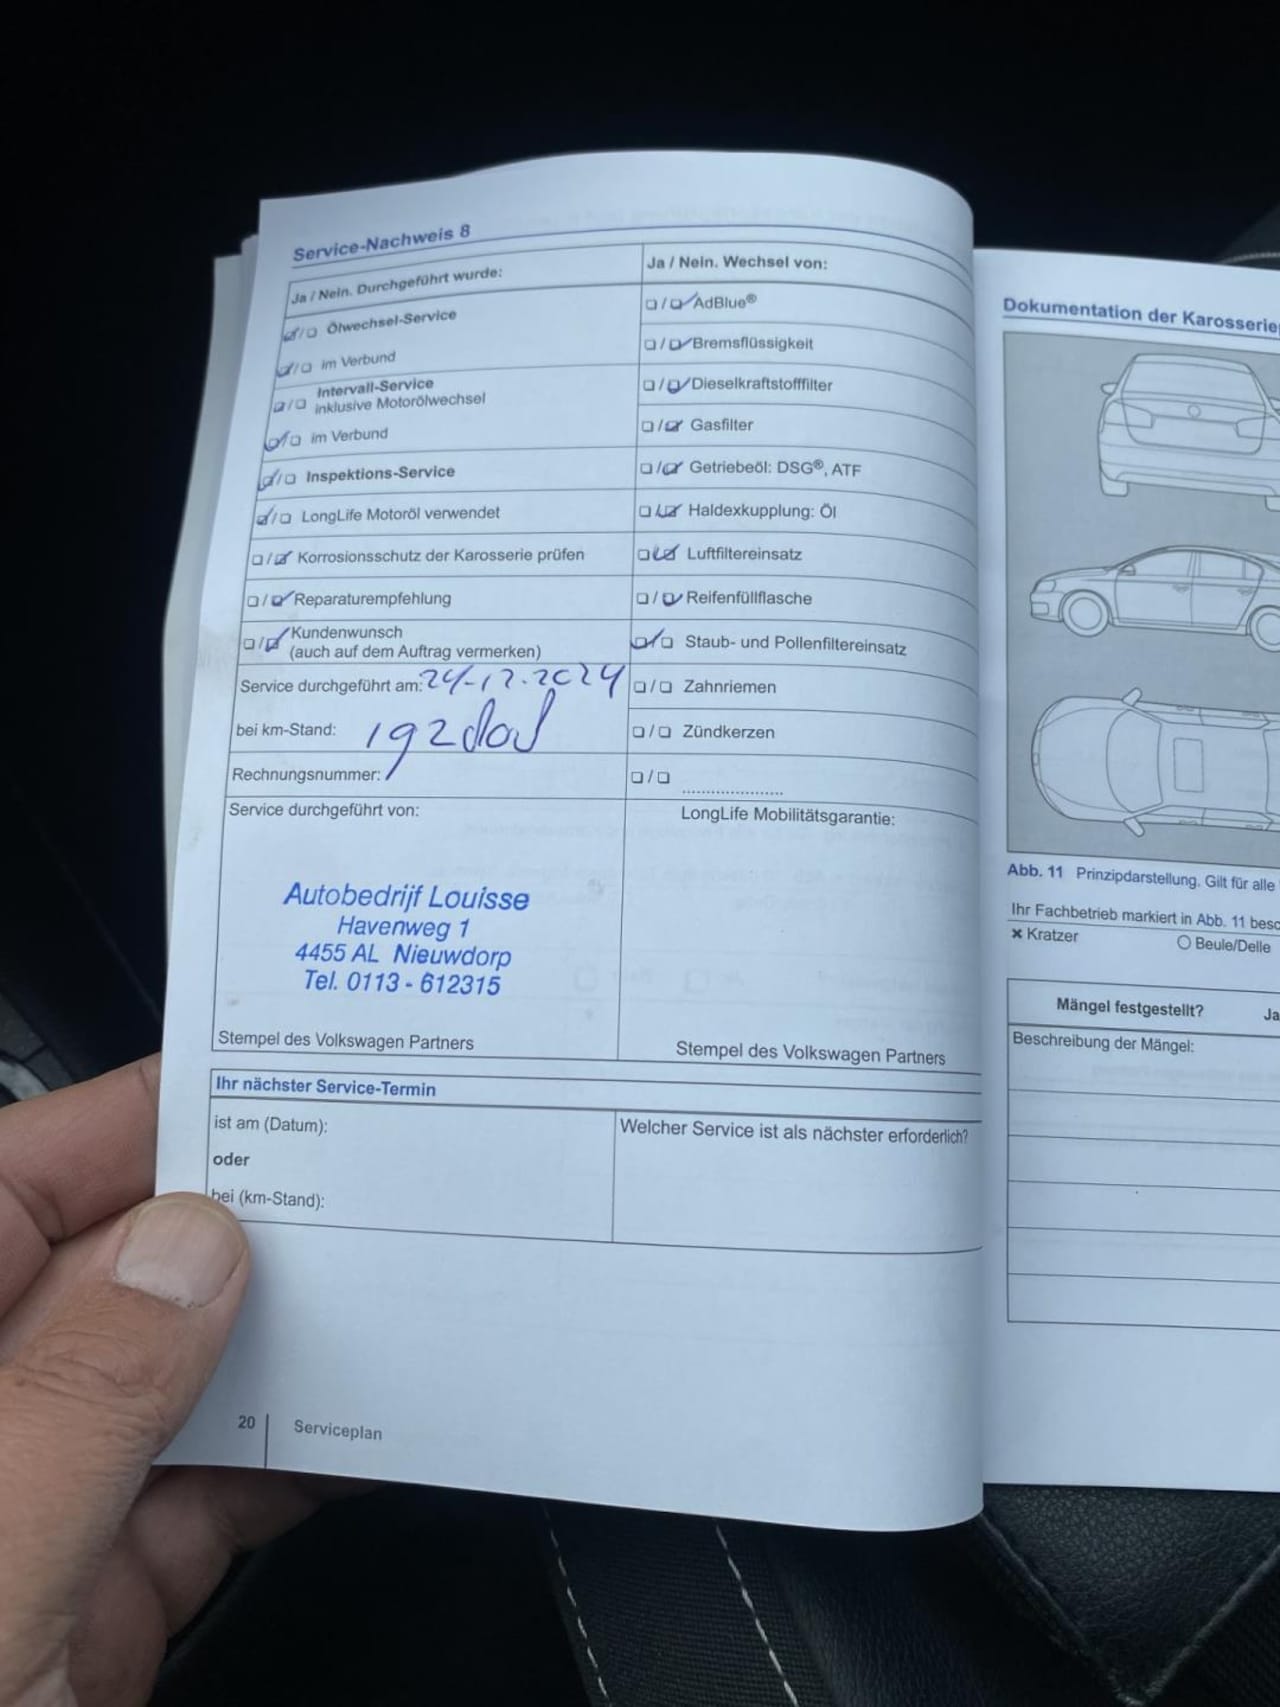 Service-Nachweis 8
Ja / Nein. Durchgeführt wurde:
Ölwechsel-Service
im Verbund
Intervall-Service
inklusive Motorölwechsel
im Verbund
Inspektions-Service
LongLife Motoröl verwendet
Korrosionsschutz der Karosserie prüfen
Reparaturempfehlung
Kundenwunsch
(auch auf dem Auftrag vermerken)
Service durchgeführt am: 24-12-2024
bei km-Stand:
Rechnungsnummer:
Service durchgeführt von:
Autobedrijf Louisse
Havenweg 1
4455 AL Nieuwdorp
Tel. 0113 - 612315
Stempel des Volkswagen Partners
Ja / Nein. Wechsel von:
AdBlue®
Bremsflüssigkeit
Dieselkraftstofffilter
Gasfilter
Getriebeöl: DSG®, ATF
Haldexkupplung: Öl
Luftfiltereinsatz
Reifenfüllflasche
Staub- und Pollenfiltereinsatz
Zahnriemen
Zündkerzen
LongLife Mobilitätsgarantie:
Stempel des Volkswagen Partners
Ihr nächster Service-Termin
ist am (Datum):
oder
bei (km-Stand):
Welcher Service ist als nächster erforderlich?
20
Serviceplan
Dokumentation der Karosserie
Abb. 11 Prinzipdarstellung. Gilt für alle
Ihr Fachbetrieb markiert in Abb. 11 besc
× Kratzer
Beule/Delle
Mängel festgestellt?
Ja
Beschreibung der Mängel: